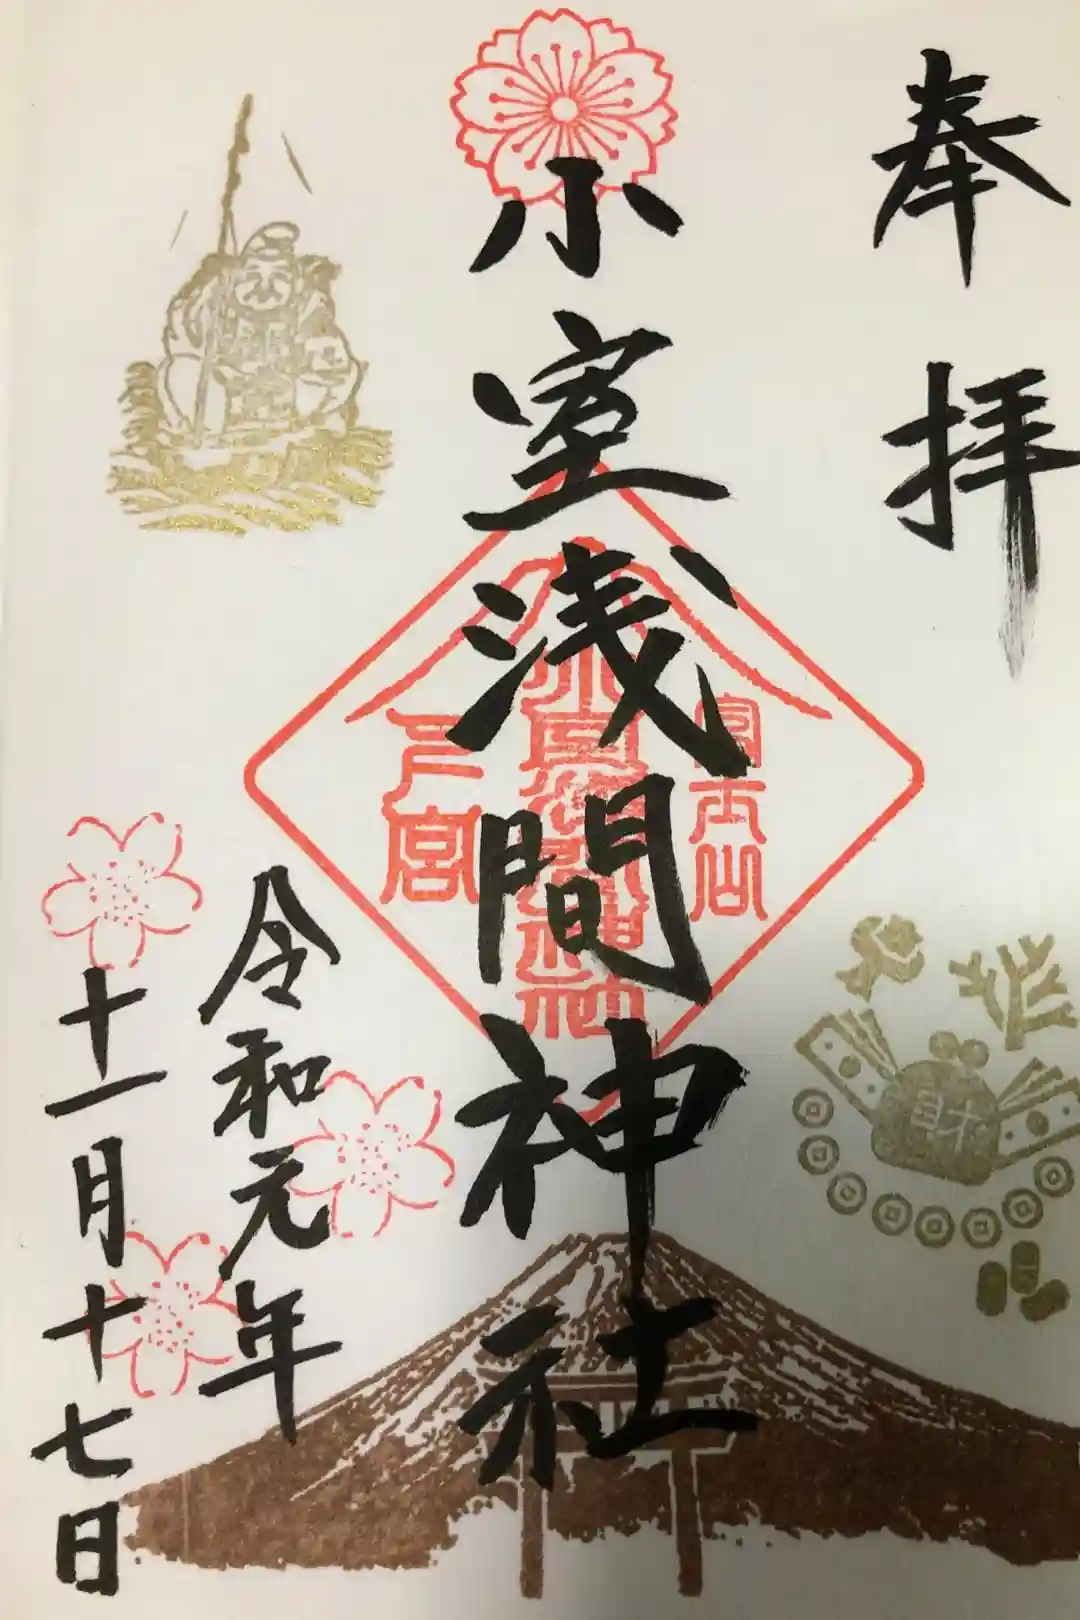 奉拝
小室浅間神社
冨士山
小室浅間神社
下宮
令和元年
十一月十七日
財